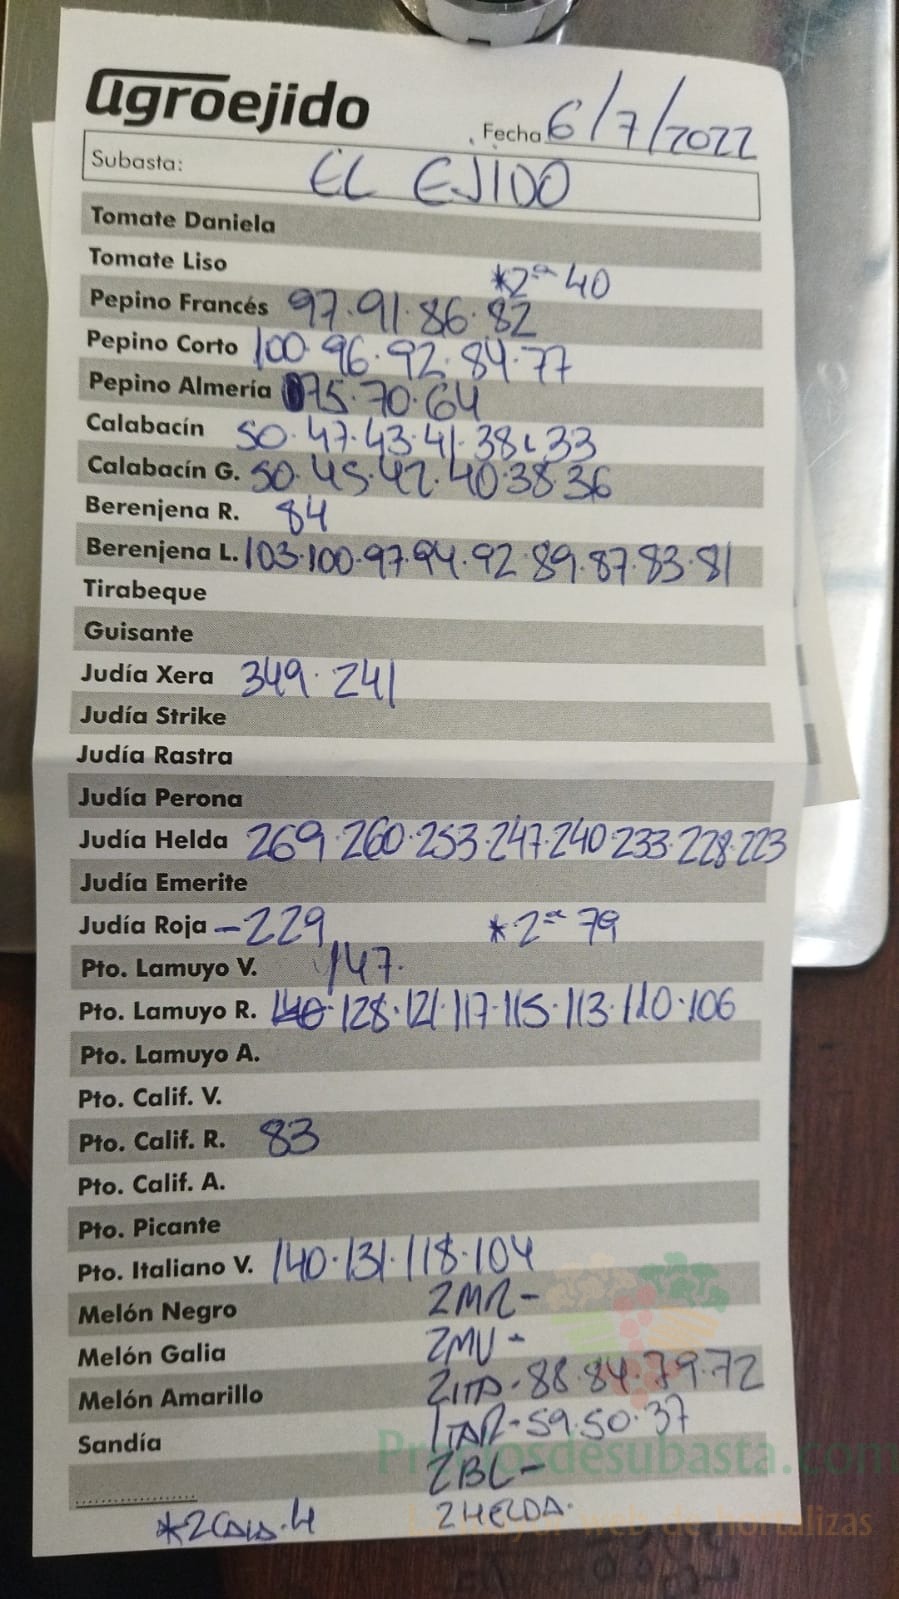 agroejido
Fecha 6/7/2022
Subasta: EL EJIDO
Tomate Daniela
Tomate Liso
*2ª 40
Pepino Francés 97·91·86·82
Pepino Corto 100·96·92·84·77
Pepino Almería 75·70·64
Calabacín 50·47·43·41·38·33
Calabacín G. 50·45·42·40·38·36
Berenjena R. 84
Berenjena L. 103·100·97·94·92·89·87·83·81
Tirabeque
Guisante
Judía Xera 349·241
Judía Strike
Judía Rastra
Judía Perona
Judía Helda 269·260·253·247·240·233·228·223
Judía Emerite
Judía Roja -229 *2ª 79
Pto. Lamuyo V. 147·
Pto. Lamuyo R. 140·128·121·117·115·113·110·106
Pto. Lamuyo A.
Pto. Calif. V.
Pto. Calif. R. 83
Pto. Calif. A.
Pto. Picante
Pto. Italiano V. 140·131·118·104
Melón Negro 2MR-
Melón Galia 2MV-
Melón Amarillo 2ITA-88·84·79·72
Sandía ITAR-59·50·37
Preciosdesubasta.com
2BL-
*2CALA·4 2HELDA·
web de hortalizas